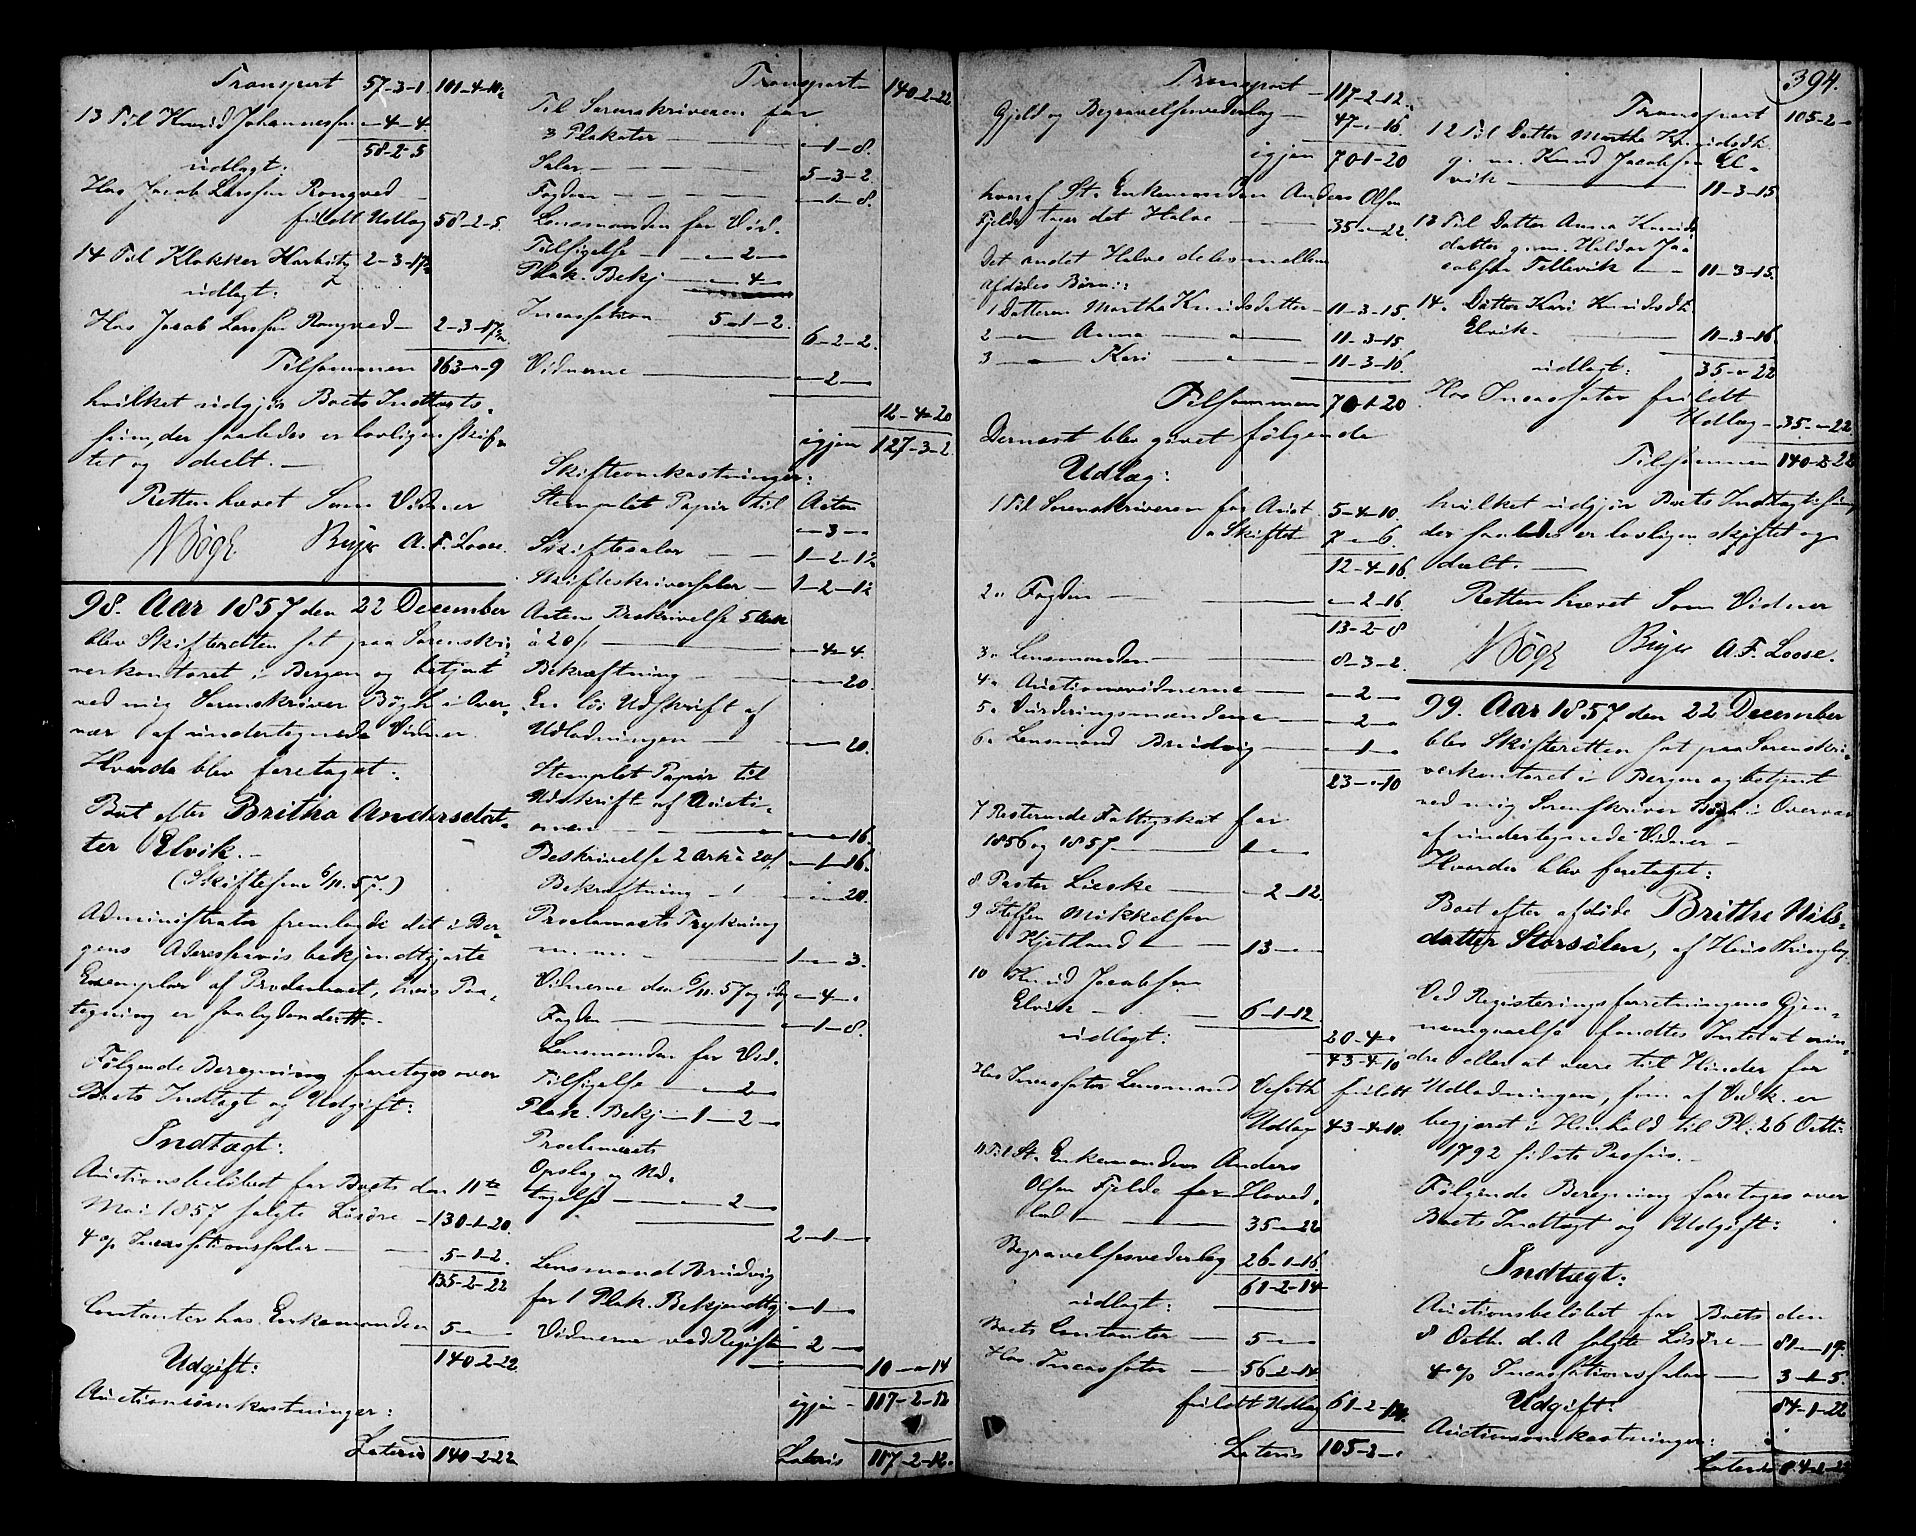 Transport 57-3-1. 101-4-10½
13 Til Knud Johannessen -4-4.
58-2-5
udlagt:
Hos Jacob Larssen Rongved
frilodt Udlæg 58-2-5.
14 Til Klokker Harbitz 2-3-17½
udlagt:
Hos Jacob Larssen Rongved 2-3-17½
Tilsammen 163-"-9
hvilket udgjør Boets Indtægts-
sum, der saaledes er lovligen skif-
tet og deelt. —
Retten hævet Som Vidner
Bøgh Beyer A. F. Loose.
98. Aar 1857 den 22 December
blev Skifteretten sat paa Sorenskri-
verkontoret i Bergen og betjent
ved mig Sorenskriver Bøgh i Over-
vær af undertegnede Vidner.
Hvorda blev foretaget:
Boet efter Britha Andersdat-
ter Elvik. —
(Skiftesm 6/11. 57.)
Administrator fremlagde det i Ber-
gens Adresseavis bekjendtgjorte
Exemplar af Proclamaet, hvis Paa-
tegning er saalydende: #. —
Følgende Beregning foretages over
Boets Indtægt og Udgift:
Indtægt:
Auctionsbeløbet for Boets den 11te
Mai 1857 solgte Løsøre 130-1-20.
4 % Incassationssalær — 5-1-2.
135-2-22
Contanter hos Enkemanden 5-"-"
140-2-22
Udgift:
Auctionsomkostninger:
Lateris 140-2-22
Transport 140-2-22
Til Sorenskriveren for
3 Plakater — "-1-8.
Salær — 5-3-2.
Fogden — "-1-8.
Lensmanden for Vid.
Tilsigelse — "-2-"
Plak. Bekj — "-4-"
Incassation 5-1-2.
6-2-2.
Vidnerne — "-2-"
12-4-20
igjen 127-3-2.
Skifteomkostninger:
Stemplet Papir til Acten
"-3-"
Skiftesalær — 1-2-12
Skifteskriversalær — 1-2-12
Actens Beskrivelse 5 Ark
à 20 s — "-4-4.
Bekræftning — "-"-20.
En løs Udskrift af
Udlodningen — "-"-20.
Stemplet Papir til
Udskrift af Aucti-
onen — "-"-16.
Beskrivelse 2 Ark à 20 s "-1-16.
Bekræftning — "-"-20.
Proclamaets Trykning
m. m. — 1-"-3.
Vidnerne den 6/11. 57 og idag "-4-"
Fogden — "-1-8.
Lensmanden for Vid.
Tilsigelse — "-2-"
Plak. Bekj — 1-2-"
Proclamaets
Opslag og Ned-
tagelse — "-2-"
2-1-"
Lensmand Brudvig
for 1 Plak. Bekjendtg. "-1-"
Vidnerne ved Registr. "-2-"
10-"-14
igjen 117-2-12
Lateris 117-2-12.
Transport 117-2-12.
Gjeld og Begravelsesvederlag — 47-"-16.
igjen 70-1-20
hvoraf St. Enkemanden Anders Olsen
Fjelde tager det Halve — 35-"-22.
Det andet Halve deles mellem
afdødes Børn:
1 Datteren Martha Knudsdatter 11-3-15.
2 — Anna — 11-3-15
3 — Kari — 11-3-16
Tilsammen 70-1-20
Dernæst blev gjort følgende
Udlæg:
1 Til Sorenskriveren for Auct. 5-4-10.
" Skiftet 7-"-6.
12-4-16.
2. Fogden — "-2-16.
13-2-8
3. Lensmanden — 8-3-2.
4. Auctionsvidnerne — "-2-"
5. Vurderingsmændene — "-2-"
6. Lensmand Brudvig — "-1-"
23-"-10
7 Resterende Fattigskat for
1856 og 1857 — 1-"-"
8 Pastor Lieske — "-2-12.
9 Steffen Mikkelsen
Kjetland — 13-"-"
10 Knud Jacobsen
Elvik — 6-1-12.
20-4-"
udlagt: 43-4-10
Hos Incassator Lensmand Vefoth frilodt
Udlæg 43-4-10.
11 Til St. Enkemanden Anders
Olsen Fjelde for Hoved-
lod — 35-"-22
Begravelsesvederlag 26-1-16.
61-2-14
udlagt:
Boets Contanter — 5-"-"
Hos Incassator — 56-2-14
frilodt Udlæg 61-2-14.
Lateris 105-2-"
394.
Transport 105-2-"
12 Til Datter Martha Knudsdtr.
g. m. Knud Jacobsen El-
vik — 11-3-15
13 Til Datter Anna Knuds-
datter g. m. Haldor Ja-
cobsen Tellevik — 11-3-15.
14. Datter Kari Knudsdtr.
Elvik. — 11-3-16.
udlagt: 35-"-22
Hos Incassator frilodt
Udlæg — 35-"-22
Tilsammen 140-2-22
hvilket udgjør Boets Indtægtssum,
der saaledes er lovligen skiftet og
deelt. —
Retten hævet Som Vidner
Bøgh Beyer A. F. Loose.
99. Aar 1857 den 22 December
blev Skifteretten sat paa Sorenskri-
verkontoret i Bergen og betjent
ved mig Sorenskriver Bøgh i Overvær
af undertegnede Vidner —
Hvorda blev foretaget:
Boet efter afdøde Brithe Nils-
datter Storsølen, af Huus Thinglag.
Ved Registeringsforretningens Gjen-
nemgaaelse fandtes Intet at erin-
dre eller at være til Hinder for
Udlodningen, som af Vedk. er
begjæret i Henhold til Pl: 26 Octb:
1792 sidste Passus. —
Følgende Beregning foretages over
Boets Indtægt og Udgift:
Indtægt:
Auctionsbeløbet for Boets den
8 Octb. d. A solgte Løsøre — 81-"-17.
4 % Incassationssalær — 3-1-5.
84-1-22
Udgift:
Auctionsomkostninger:
Lateris 84-1-22